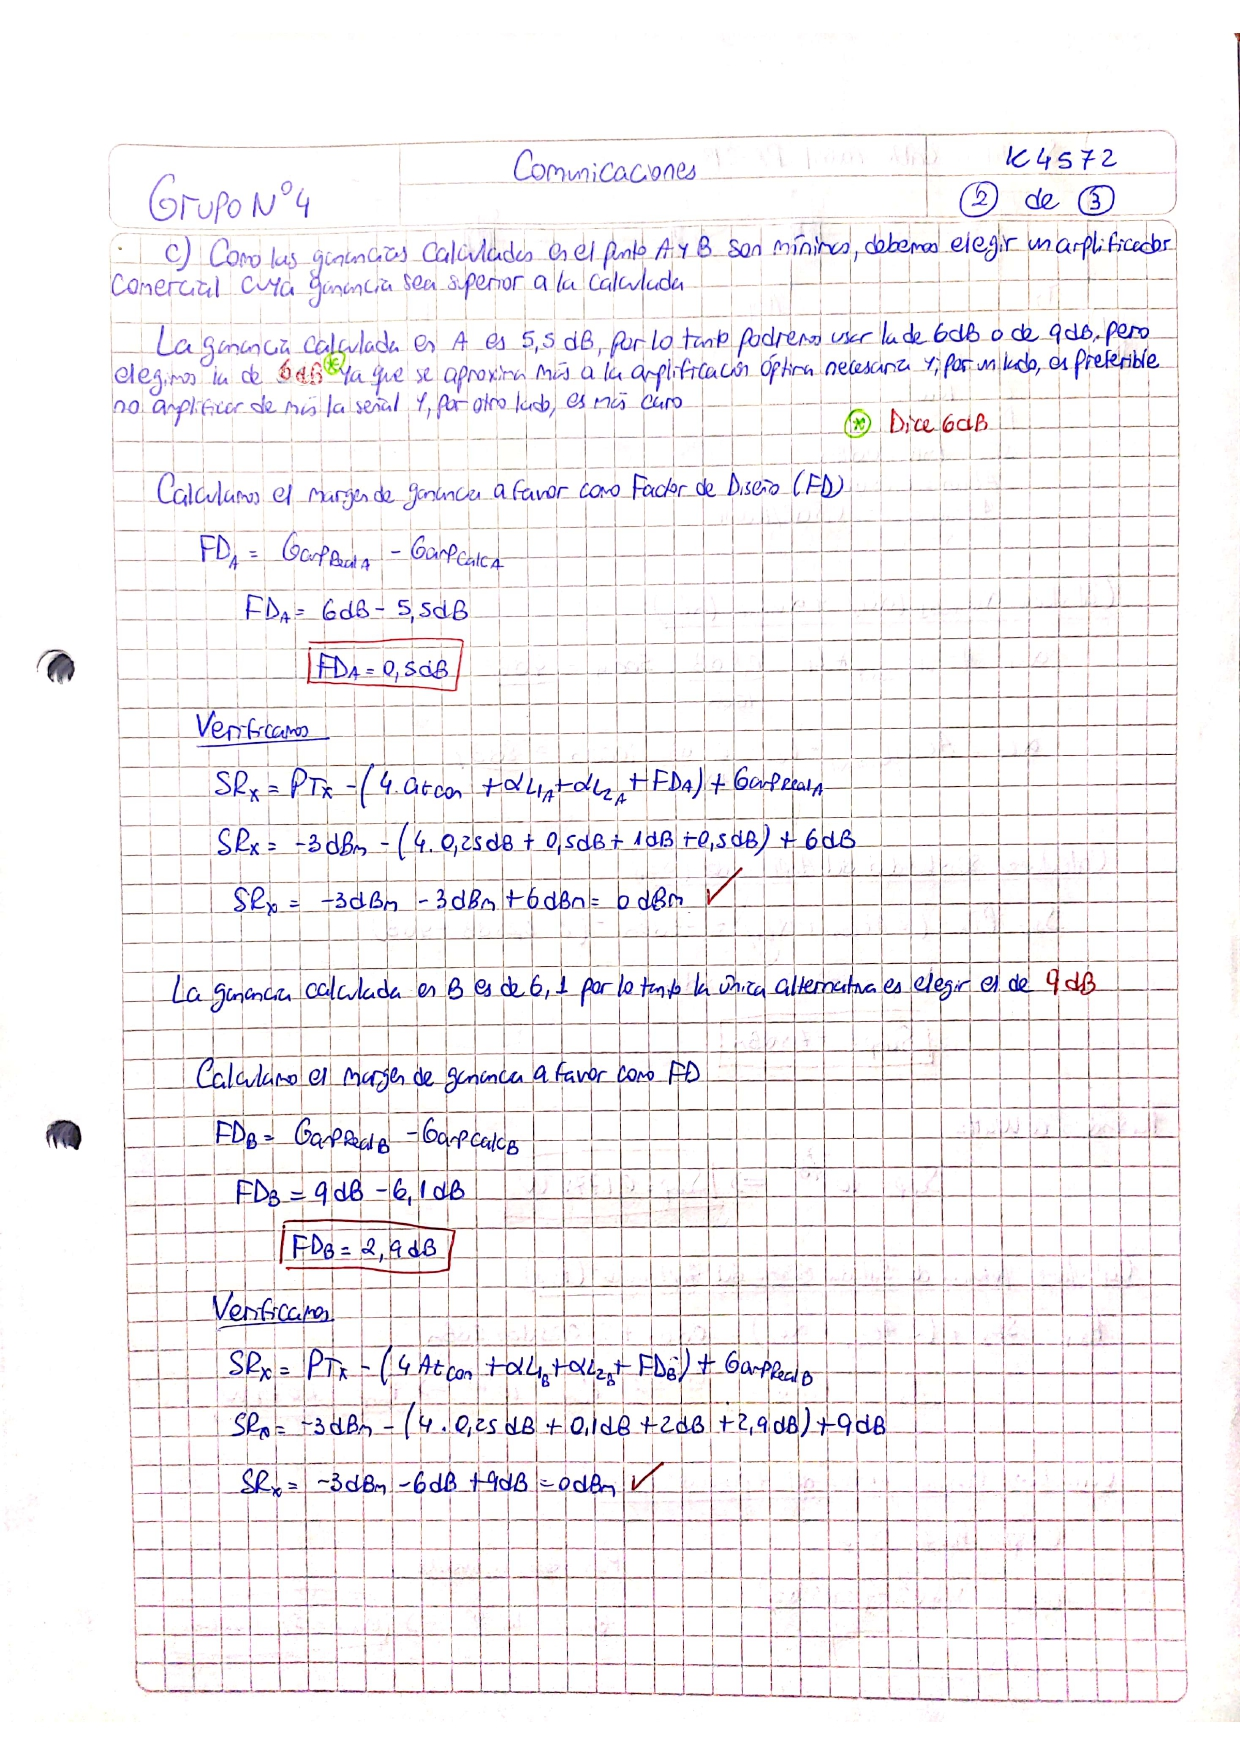 Comunicaciones
K4572
Grupo N°4
2 de 3
c) Como las ganancias calculadas en el punto A y B son mínimas, debemos elegir un amplificador
comercial cuya ganancia sea superior a la calculada
La ganancia calculada en A es 5,5 dB, por lo tanto podremos usar la de 6dB o de 9dB, pero
elegimos la de 6dB * ya que se aproxima más a la amplificación óptima necesaria y, por un lado, es preferible
no amplificar de más la señal y, por otro lado, es más caro
* Dice 6dB
Calculamos el margen de ganancia a favor como Factor de Diseño (FD)
FDA = GampRealA - GampCalcA
FDA = 6dB - 5,5dB
FDA = 0,5dB
Verificamos
SRx = PTx - (4. atcon + αL1A + αL2A + FDA) + GampRealA
SRx = -3dBm - (4. 0,25dB + 0,5dB + 1dB + 0,5dB) + 6dB
SRx = -3dBm - 3dBm + 6dBm = 0dBm ✓
La ganancia calculada en B es de 6,1 por lo tanto la única alternativa es elegir el de 9dB
Calculamo el margen de ganancia a favor como FD
FDB = GampRealB - GampCalcB
FDB = 9dB - 6,1dB
FDB = 2,9dB
Verificamos
SRx = PTx - (4 Atcon + αL1B + αL2B + FDB) + GampRealB
SRx = -3dBm - (4. 0,25dB + 0,1dB + 2dB + 2,9dB) + 9dB
SRx = -3dBm - 6dB + 9dB = 0dBm ✓